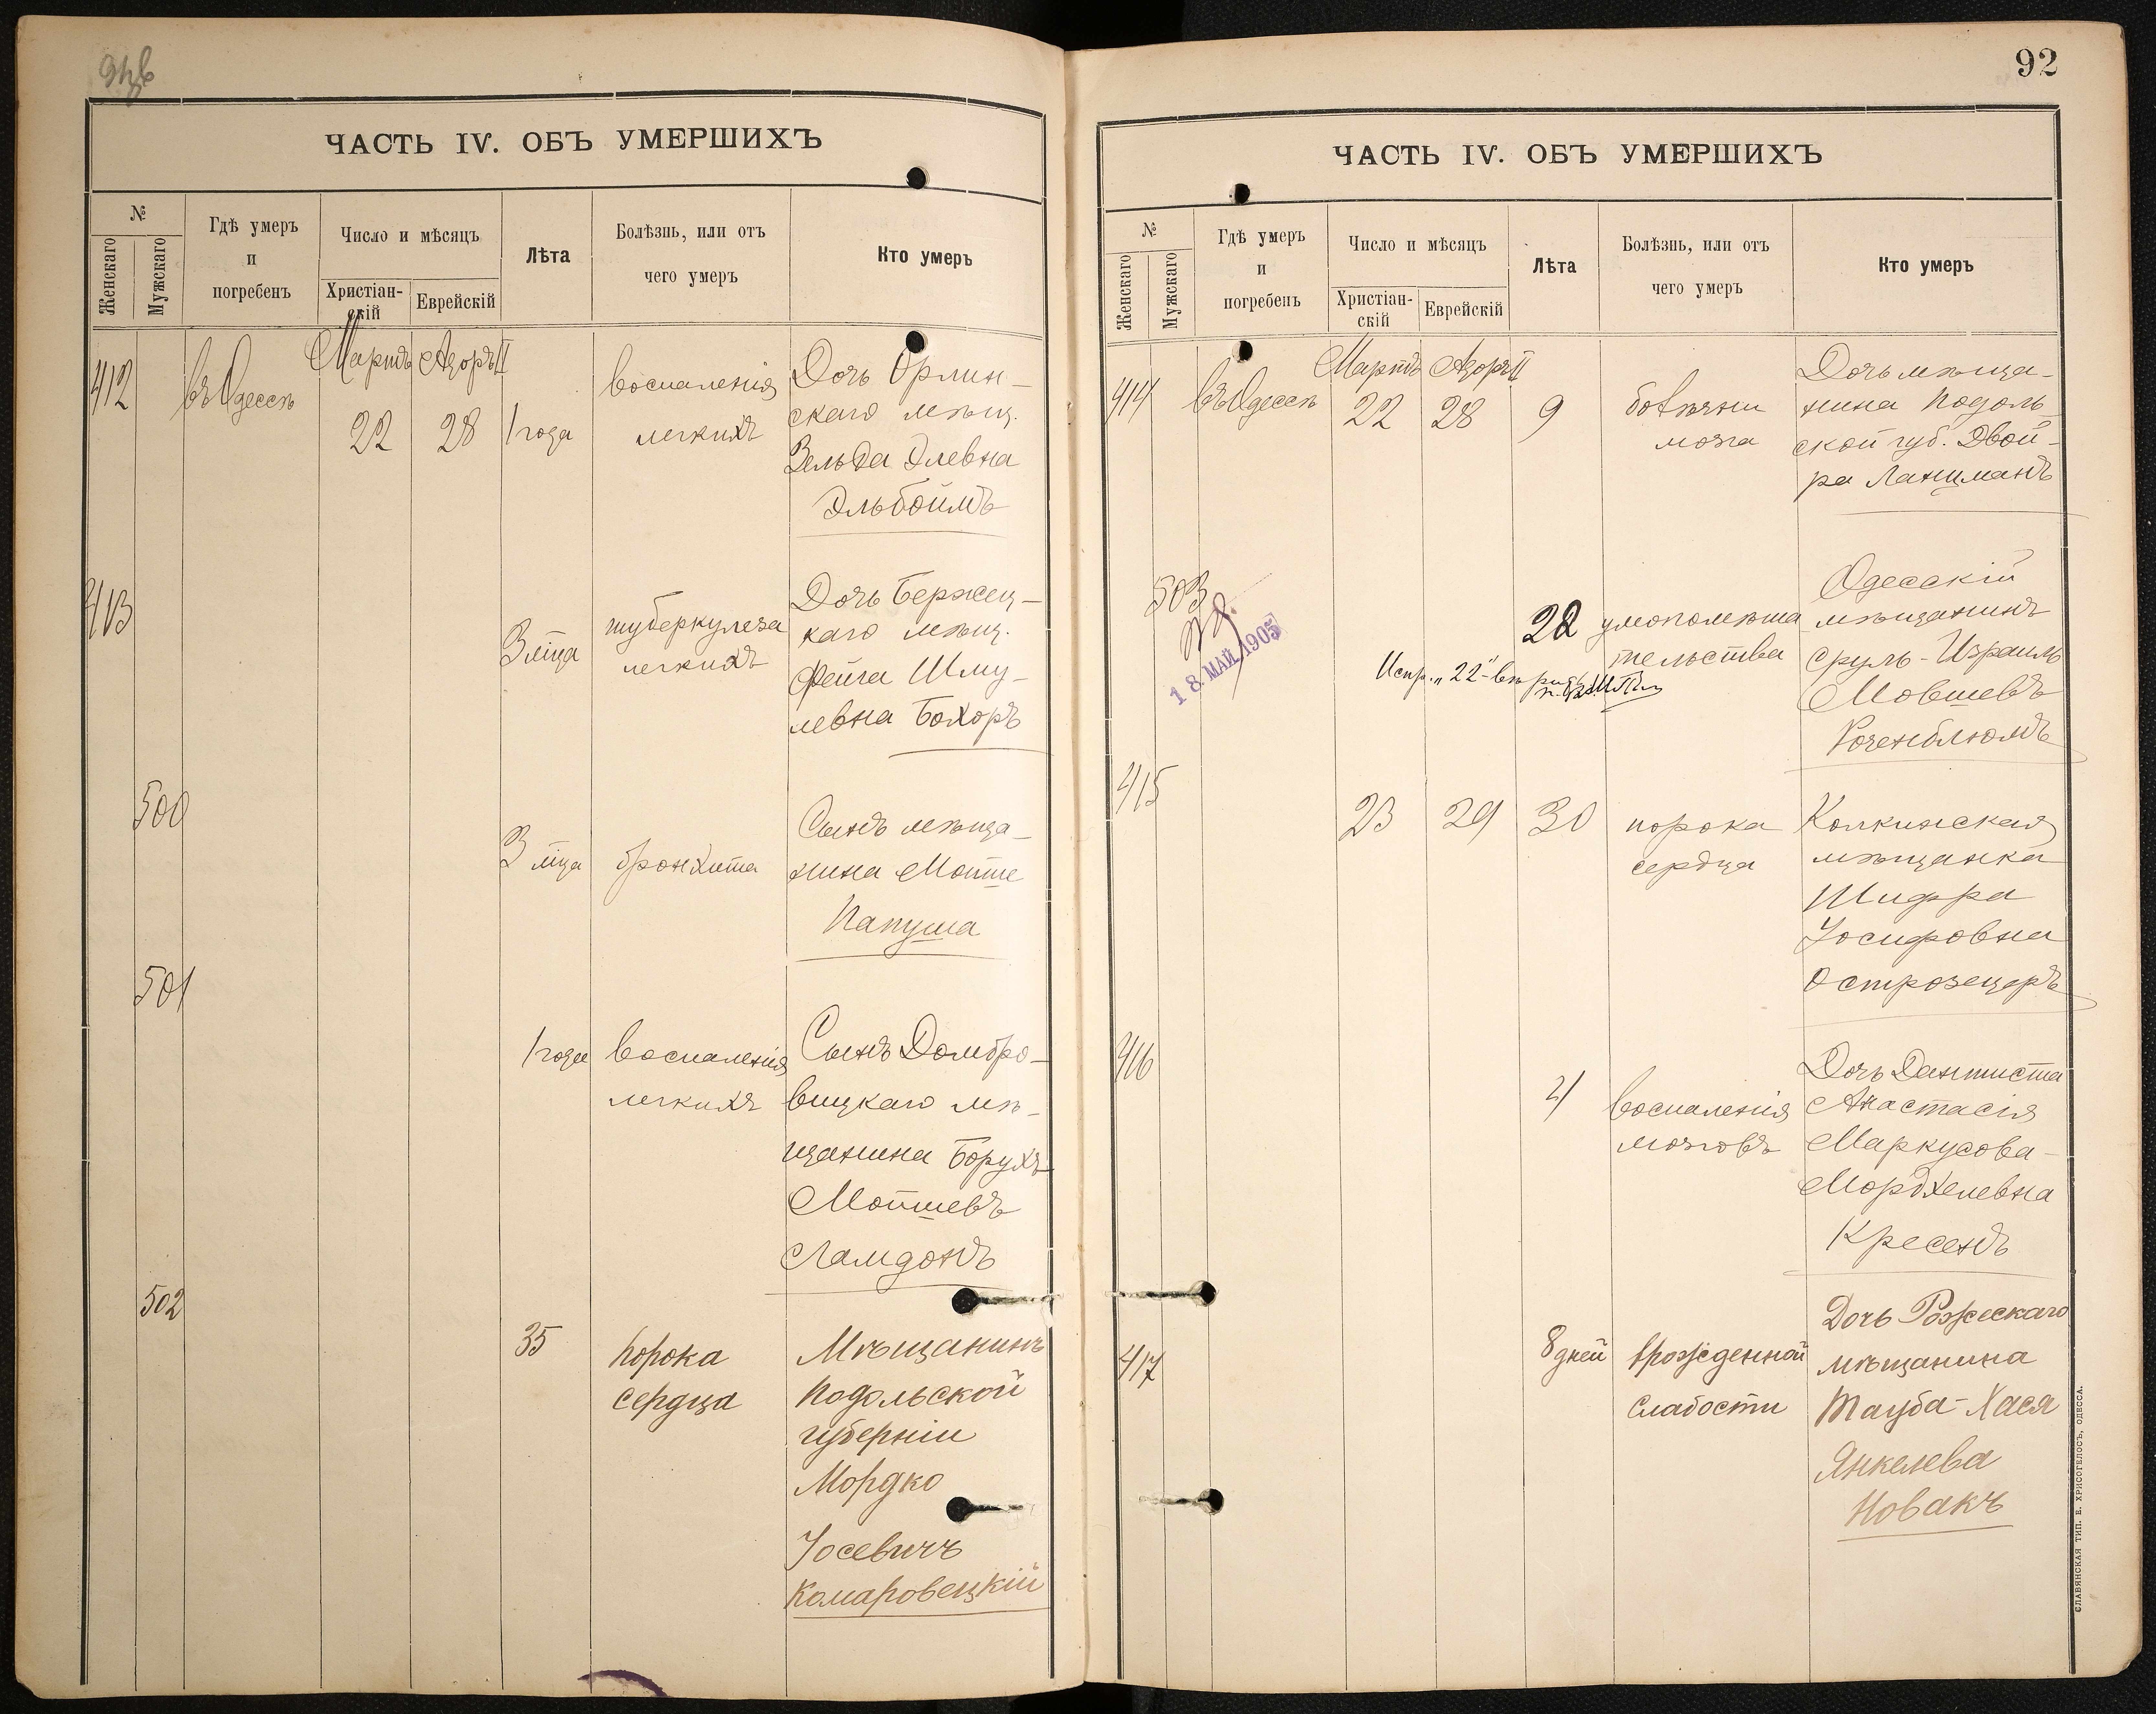 ЧАСТЬ IV. ОБЪ УМЕРШИХЪ
№
Женскаго
Мужскаго
Гдѣ умеръ
и
погребенъ
Число и мѣсяцъ
Христіан-
скій
Еврейскій
Лѣта
Болѣзнь, или отъ
чего умеръ
Кто умеръ
412
въ Одессѣ
Мартъ Адоръ II
22 28
1 года
воспаленія
легкихъ
Дочь Орлин-
скаго мѣщ.
Зельда Элевна
Эльбоймъ
413
3 мца
туберкулеза
легкихъ
Дочь Бержец-
каго мѣщ.
Фейга Шму-
левна Бохоръ
500
3 мца
бронхита
Сынъ мѣща-
нина Мотте
Папуша
501
1 года
воспаленія
легкихъ
Сынъ Домбро-
вицкаго мѣ-
щанина Борухъ
Мотшевъ
Ламдонъ
502
35
порока
сердца
Мѣщанинъ
Подольской
губерніи
Мордко
Іосевичъ
Комаровецкій
92
ЧАСТЬ IV. ОБЪ УМЕРШИХЪ
№
Женскаго
Мужскаго
Гдѣ умеръ
и
погребенъ
Число и мѣсяцъ
Христіан-
скій
Еврейскій
Лѣта
Болѣзнь, или отъ
чего умеръ
Кто умеръ
414
въ Одессѣ
Мартъ Адоръ II
22 28
9
болѣзни
мозга
Дочь мѣща-
нина Подоль-
ской губ. Двой-
ра Ланцманъ
503
18 МАЙ 1905
22
умопомѣша
тельства
Испр. „22" въ
Одесскій
мѣщанинъ
Сруль-Израиль
Мовшевъ
Розенблюмъ
415
23 29
30
порока
сердца
Колкинская
мѣщанка
Шифра
Іосифовна
Острозецеръ
416
4
воспаленія
мозговъ
Дочь Дантиста
Анастасія
Маркусова-
Мордхелевна
Кресенъ
417
8 дней
врожденной
слабости
Дочь Ряжескаго
мѣщанина
Тауба-Хася
Янкелева
Новакъ
СЛАВЯНСКАЯ ТИП. Е. ХРИСОГЕЛОСЪ, ОДЕССА.